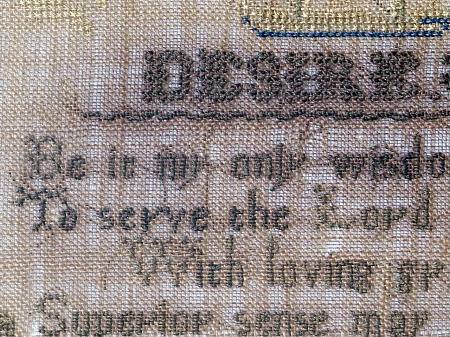 DESIRE
Be it my only wisdo
To serve the Lord
With loving gr
Superior sense may